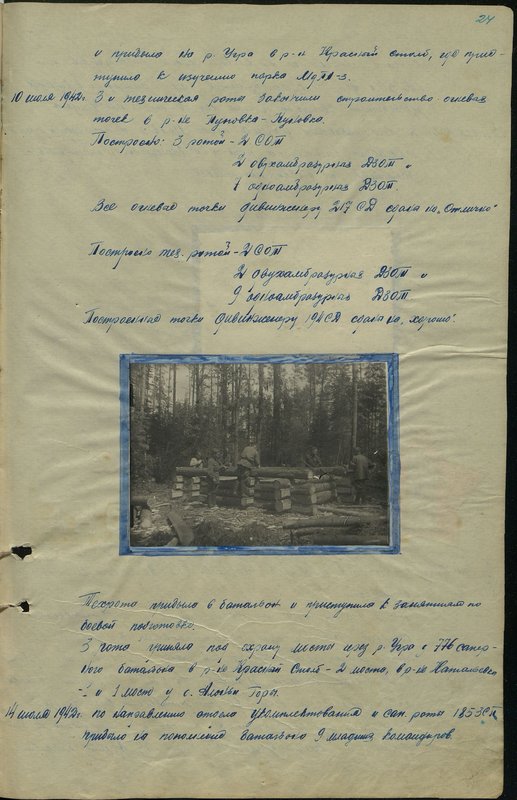 24
и прибыла на р. Угра в р-н Красный столб, где прис-
тупила к изучению парка МдПА-3.
10 июля 1942г. 3 и техническая роты закончили строительство огневых
точек в р-не
Построено: 3 ротой - 2 СОТ
2 двухамбразурных ДЗОТ и
7 одноамбразурных ДЗОТ.
Все огневые точки дивинженеру 217 СД сданы на „Отлично"
Построено тех. ротой - 2 СОТ
2 двухамбразурных ДЗОТ и
9 одноамбразурных ДЗОТ.
Построенные точки дивинженеру 194 СД сданы на „хорошо".
Техрота прибыла в батальон и приступила к занятиям по
боевой подготовке.
3 рота приняла под охрану мосты через р. Угра у 776 сапер-
ного батальона в р-не Красный Столб - 2 моста, в р-не
- 1 и 1 мост у с. Горы.
14 июля 1942г. по направлению отдела укомплектования и сап. роты 1853 СП
прибыло на пополнение батальона 9 младших командиров.